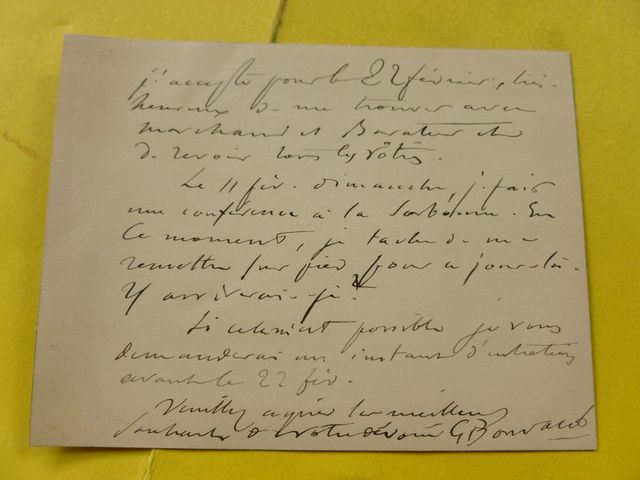 j'accepte pour le 22 février, très
heureux de me trouver avec
Marchand et Baratier et
de revoir tous les vôtres.
Le 11 fév. dimanche, je fais
une conférence à la Sorbonne. En
ce moment, je tache de me
remettre sur pied pour ce jour-là.
Y arriverai-je?
Si cela m'est possible je vous
demanderai un instant d'entretien
avant le 22 fév.
Veuillez agréer les meilleurs
souhaits de votre dévoué G Bonvalot